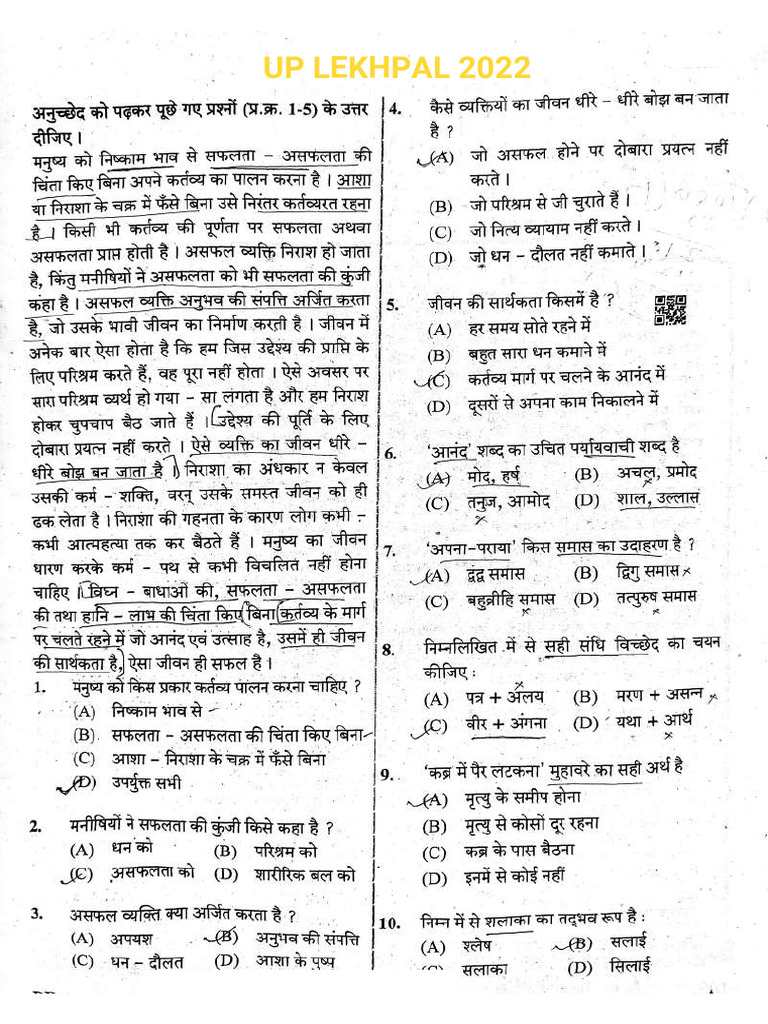 UP LEKHPAL 2022
अनुच्छेद को पढ़कर पूछे गए प्रश्नों (प्र.क्र. 1-5) के उत्तर
दीजिए ।
मनुष्य को निष्काम भाव से सफलता – असफलता की
चिंता किए बिना अपने कर्तव्य का पालन करना है । आशा
या निराशा के चक्र में फँसे बिना उसे निरंतर कर्तव्यरत रहना
है । किसी भी कर्तव्य की पूर्णता पर सफलता अथवा
असफलता प्राप्त होती है । असफल व्यक्ति निराश हो जाता
है, किंतु मनीषियों ने असफलता को भी सफलता की कुंजी
कहा है । असफल व्यक्ति अनुभव की संपत्ति अर्जित करता
है, जो उसके भावी जीवन का निर्माण करती है । जीवन में
अनेक बार ऐसा होता है कि हम जिस उद्देश्य की प्राप्ति के
लिए परिश्रम करते हैं, वह पूरा नहीं होता । ऐसे अवसर पर
सारा परिश्रम व्यर्थ हो गया – सा लगता है और हम निराश
होकर चुपचाप बैठ जाते हैं । उद्देश्य की पूर्ति के लिए
दोबारा प्रयत्न नहीं करते । ऐसे व्यक्ति का जीवन धीरे –
धीरे बोझ बन जाता है । निराशा का अंधकार न केवल
उसकी कर्म – शक्ति, वरन् उसके समस्त जीवन को ही
ढक लेता है । निराशा की गहनता के कारण लोग कभी –
कभी आत्महत्या तक कर बैठते हैं । मनुष्य का जीवन
धारण करके कर्म – पथ से कभी विचलित नहीं होना
चाहिए । विघ्न – बाधाओं की, सफलता – असफलता
की तथा हानि – लाभ की चिंता किए बिना कर्तव्य के मार्ग
पर चलते रहने में जो आनंद एवं उत्साह है, उसमें ही जीवन
की सार्थकता है, ऐसा जीवन ही सफल है ।
1. मनुष्य को किस प्रकार कर्तव्य पालन करना चाहिए ?
(A) निष्काम भाव से
(B) सफलता – असफलता की चिंता किए बिना
(C) आशा – निराशा के चक्र में फँसे बिना
(D) उपर्युक्त सभी
2. मनीषियों ने सफलता की कुंजी किसे कहा है ?
(A) धन को (B) परिश्रम को
(C) असफलता को (D) शारीरिक बल को
3. असफल व्यक्ति क्या अर्जित करता है ?
(A) अपयश (B) अनुभव की संपत्ति
(C) धन – दौलत (D) आशा के पुष्प
4. कैसे व्यक्तियों का जीवन धीरे – धीरे बोझ बन जाता
है ?
(A) जो असफल होने पर दोबारा प्रयत्न नहीं
करते ।
(B) जो परिश्रम से जी चुराते हैं ।
(C) जो नित्य व्यायाम नहीं करते ।
(D) जो धन – दौलत नहीं कमाते ।
5. जीवन की सार्थकता किसमें है ?
(A) हर समय सोते रहने में
(B) बहुत सारा धन कमाने में
(C) कर्तव्य मार्ग पर चलने के आनंद में
(D) दूसरों से अपना काम निकालने में
6. ‘आनंद’ शब्द का उचित पर्यायवाची शब्द है
(A) मोद, हर्ष (B) अचल, प्रमोद
(C) तनुज, आमोद (D) शाल, उल्लास
7. ‘अपना-पराया’ किस समास का उदाहरण है ?
(A) द्वंद्व समास (B) द्विगु समास
(C) बहुव्रीहि समास (D) तत्पुरुष समास
8. निम्नलिखित में से सही संधि विच्छेद का चयन
कीजिए :
(A) पत्र + अलय (B) मरण + असन्न
(C) वीर + अंगना (D) यथा + आर्थ
9. ‘कब्र में पैर लटकना’ मुहावरे का सही अर्थ है
(A) मृत्यु के समीप होना
(B) मृत्यु से कोसों दूर रहना
(C) कब्र के पास बैठना
(D) इनमें से कोई नहीं
10. निम्न में से शलाका का तद्भव रूप है :
(A) श्लेष (B) सलाई
(C) सलाका (D) सिलाई